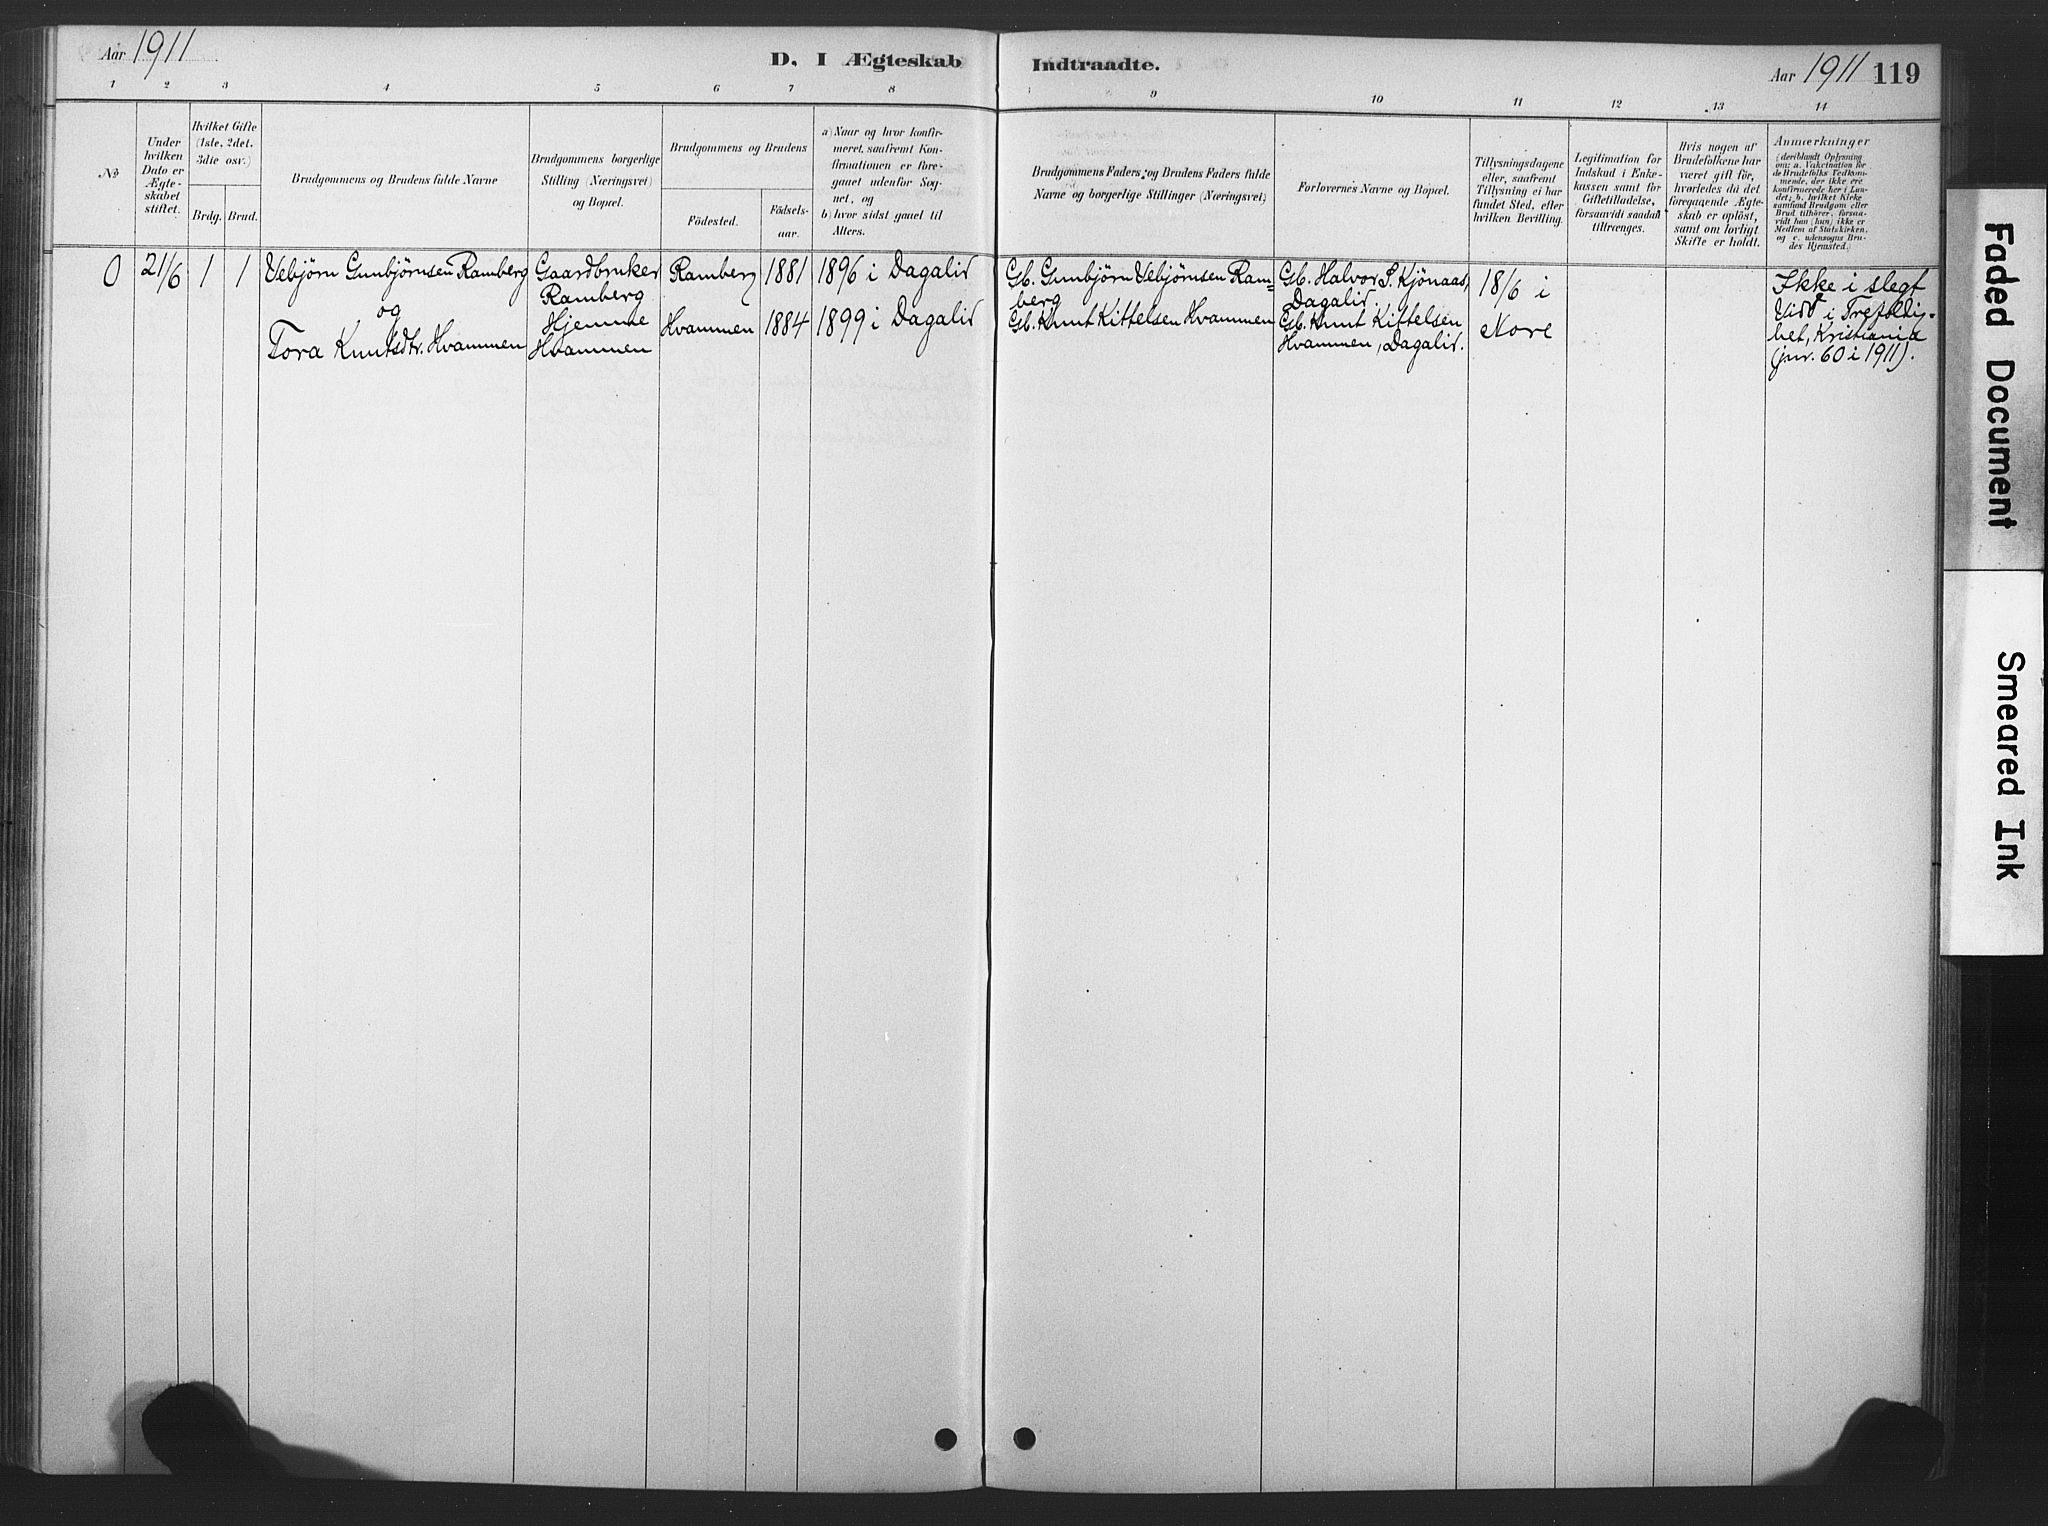 Aar 1911
D. I Ægteskab
Indtraadte.
Aar 1911 119
1 2 3 4 5 6 7 8
9 10 11 12 13 14
No
Under
hvilken
Dato er
Ægte-
skabet
stiftet.
Hvilket Gifte
(1ste, 2det.
3die osv.)
Brdg. Brud.
Brudgommens og Brudens fulde Navne
Brudgommens borgerlige
Stilling (Næringsvei)
og Bopæl.
Brudgommens og Brudens
Födested.
Födsels-
aar.
a) Naar og hvor konfir-
meret, saafremt Kon-
firmationen er fore-
gaaet udenfor Sog-
net, og
b) hvor sidst gaaet til
Alters.
Brudgommens Faders og Brudens Faders fulde
Navne og borgerlige Stillinger (Næringsvei)
Forlovernes Navne og Bopæl.
Tillysningsdagene
eller, saafremt
Tillysning ei har
fundet Sted, efter
hvilken Bevilling.
Legitimation for
Indskud i Enke-
kassen samt for
Giftetilladelse,
forsaavidt saadan
tiltrænges.
Hvis nogen af
Brudefolkene har
været gift för,
hvorledes da det
foregaaende Ægte-
skab er oplöst,
samt om lovligt
Skifte er holdt.
Anmerkninger
(deriblandt Oplysning
om: a. Vakcination for
de Brudefolks Vedkom-
mende, der ikke ere
konfirmerede her i Lan-
det; b. hvilket Kirke
samfund Brudgom eller
Brud tilhörer, forsaa-
vidt han (hun) ikke er
Medlem af Statskirken,
og c. udensogns Bru-
des Hjemsted.)
0 21/6 1 1 Vebjørn Gunbjørnsen Ramberg
og
Tora Knutsdtr. Hvammen
Gaardbruker
Ramberg
Hjemme
Hvammen
Ramberg 1881 1896 i Dagalid
Hvammen 1884 1899 i Dagalid
Gb. Gunbjørn Vebjørnsen Ram=
berg
Gb. Knut Kittelsen Hvammen
Gb. Halvor P. Kjönaas,
Dagalid.
Gb. Knut Kittelsen
Hvammen, Dagalid.
18/6 i
Nore
Ikke i slegt
Vidd i Trefoldig-
het, Kristiania
(jnr. 60 i 1911).
Faded Document
Smeared Ink